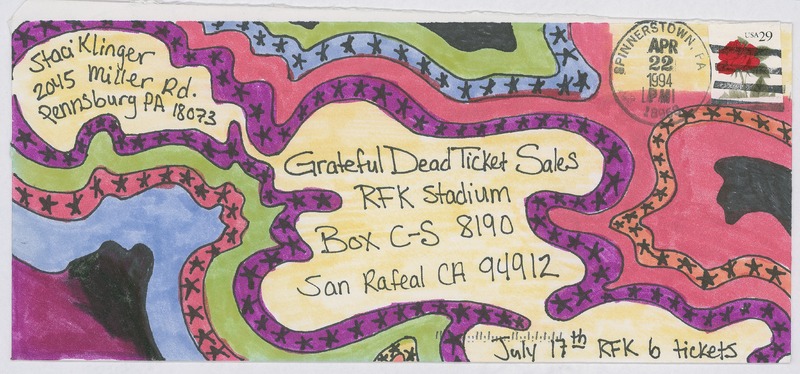 Staci Klinger
2045 Miller Rd.
Pennsburg PA 18073
SPINNERSTOWN, PA
APR
22
1994
PM
USA 29
Grateful Dead Ticket Sales
RFK Stadium
Box C-S 8190
San Rafeal CA 94912
July 17th RFK 6 tickets